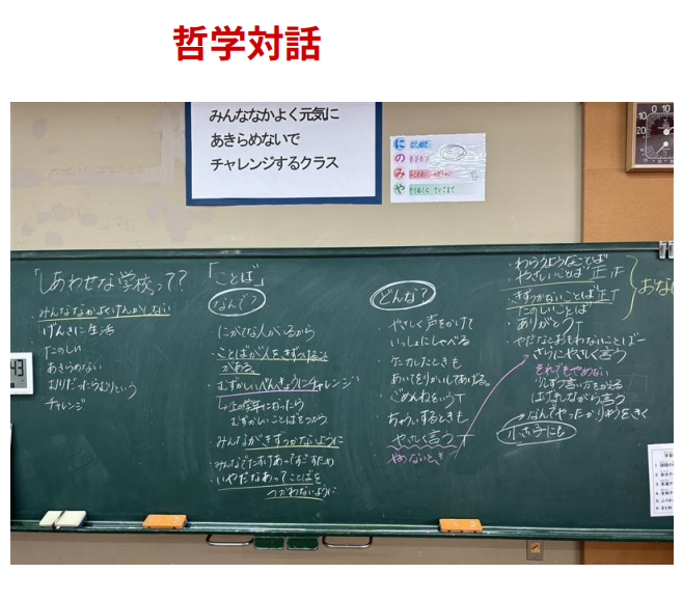 哲学対話
みんななかよく元気に
あきらめないで
チャレンジするクラス
に
の
み
や
「しあわせな学校」って?
みんななかよくけんかしない
げんきに生活
たのしい
あきらめない
むりだったらむりという
チャレンジ
「ことば」
なんで?
・にがてな人がいるから
・ことばが人をきずつけること
がある。
・むずかしいべんきょうにチャレンジ
→上の学年になったら
むずかしいことばをつかう
・みんながきずつかないように
・みんなでたすけあってすごすため
・いやだなあってことばを
つかわないように
どんな?
・やさしく声をかけて
いっしょにしゃべる
・ケンカしたときも
あいてをりかいしてあげる。
・ごめんねをいう T
・ちゅういするときも
やさしく言う T
やめないとき
・わらうようなことば
・やさしいことば 正 下
・きずつかないことば 正 T
・たのしいことば
・ありがとう T
・やだなとおもわないことばー
さらにやさしく言う
それでもやめない
りゆう言い方をかえる
はげましながら言う
→なんでやったかりゆうをきく
小さい子にも
43